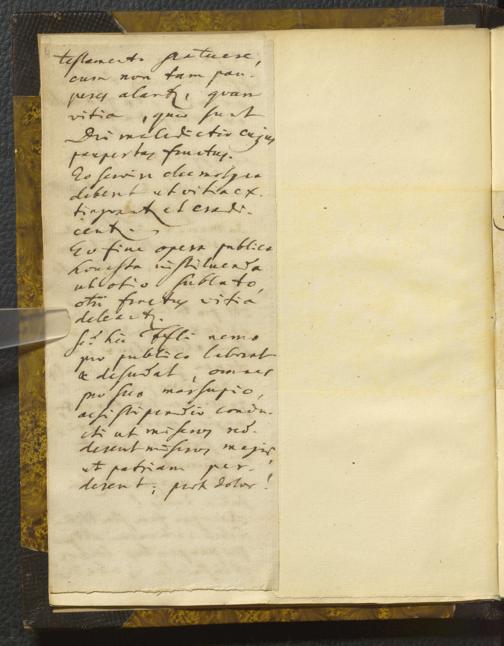 testamento statuere,
cum non tam pau-
peres alant, quam
vitia, quae sunt
Dei maledictio cujus
paupertas fructus.
Eo servire eleemosynae
debent ut vitia ex-
tinguant et eradi-
cent.
Eo fine opera publica
honesta instituenda
ut otio sublato,
otii fructus vitia
deleant.
Sed hic nemo
pro publico laborat
& desudat, omnes
pro suo marsupio,
ac si stipendio condu-
cti ut miseros red-
derent miseros magis
ut patriam per-
derent; proh dolor!